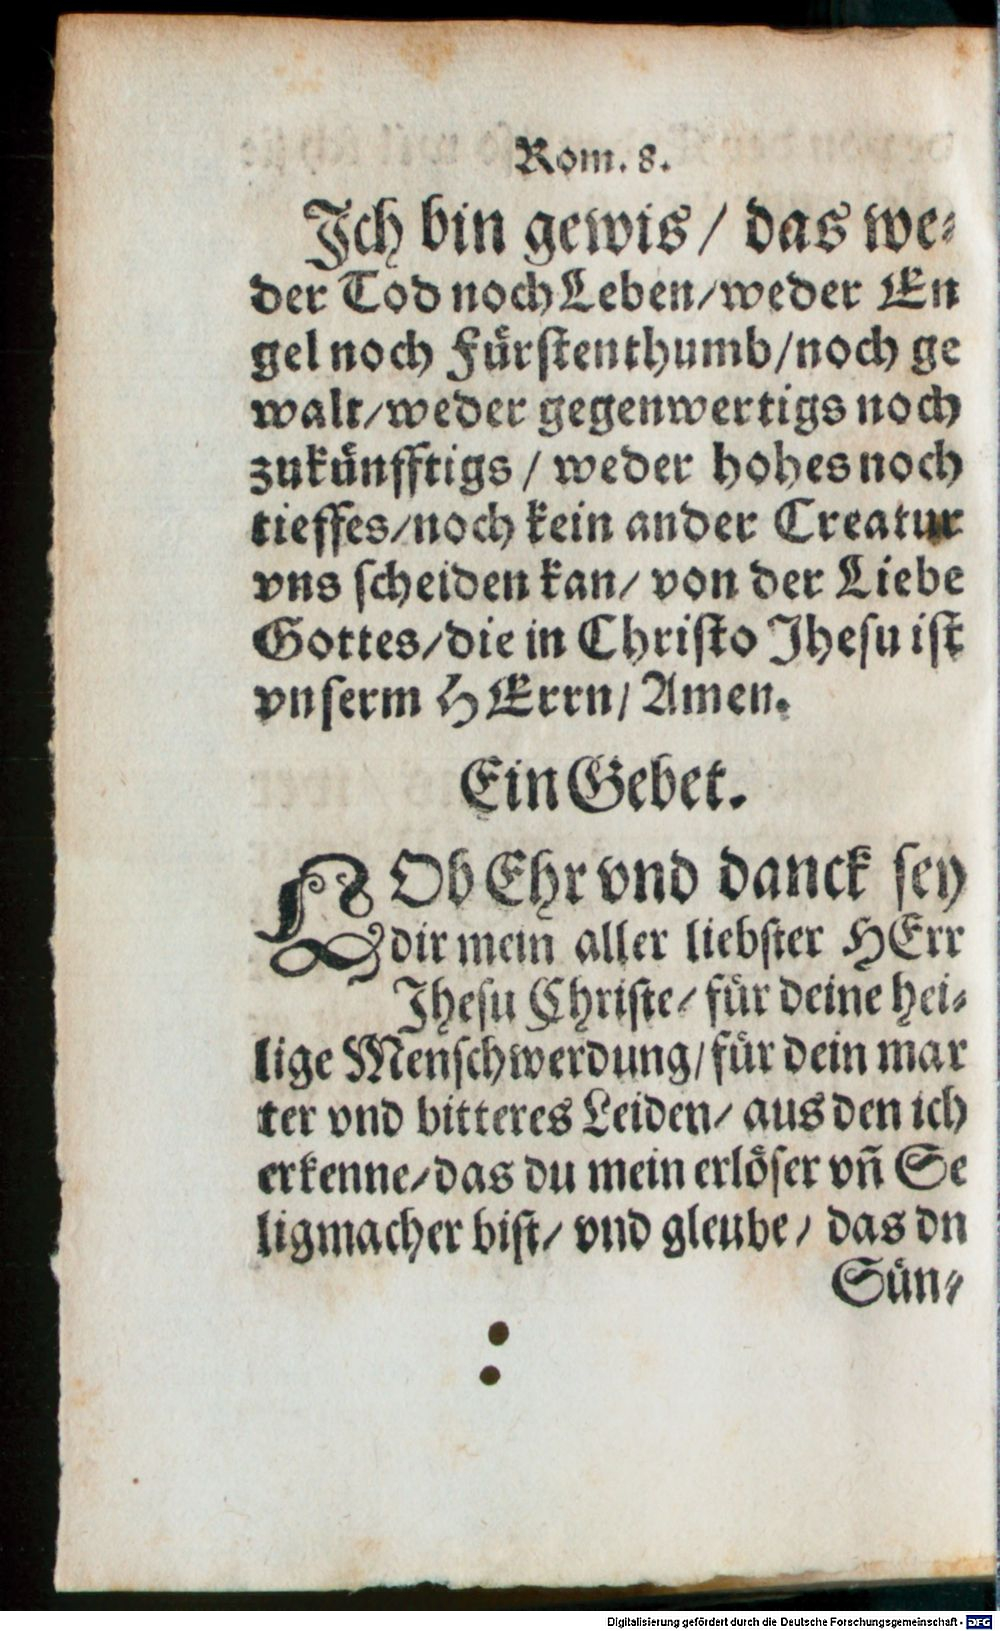 Rom. 8.
Ich bin gewis / das we⸗
der Tod noch Leben / weder En
gel noch Fürstenthumb / noch ge
walt / weder gegenwertigs noch
zukünfftigs / weder hohes noch
tieffes / noch kein ander Creatur
vns scheiden kan / von der Liebe
Gottes / die in Christo Jhesu ist
vnserm HErrn / Amen.
Ein Gebet.
LOb Ehr vnd danck sey
dir mein aller liebster HErr
Jhesu Christe / für deine hei⸗
lige Menschwerdung / für dein mar
ter vnd bitteres Leiden / aus den ich
erkenne / das du mein erlöser vñ Se
ligmacher bist / vnd gleube / das dn
Sün⸗
Digitalisierung gefördert durch die Deutsche Forschungsgemeinschaft - DFG